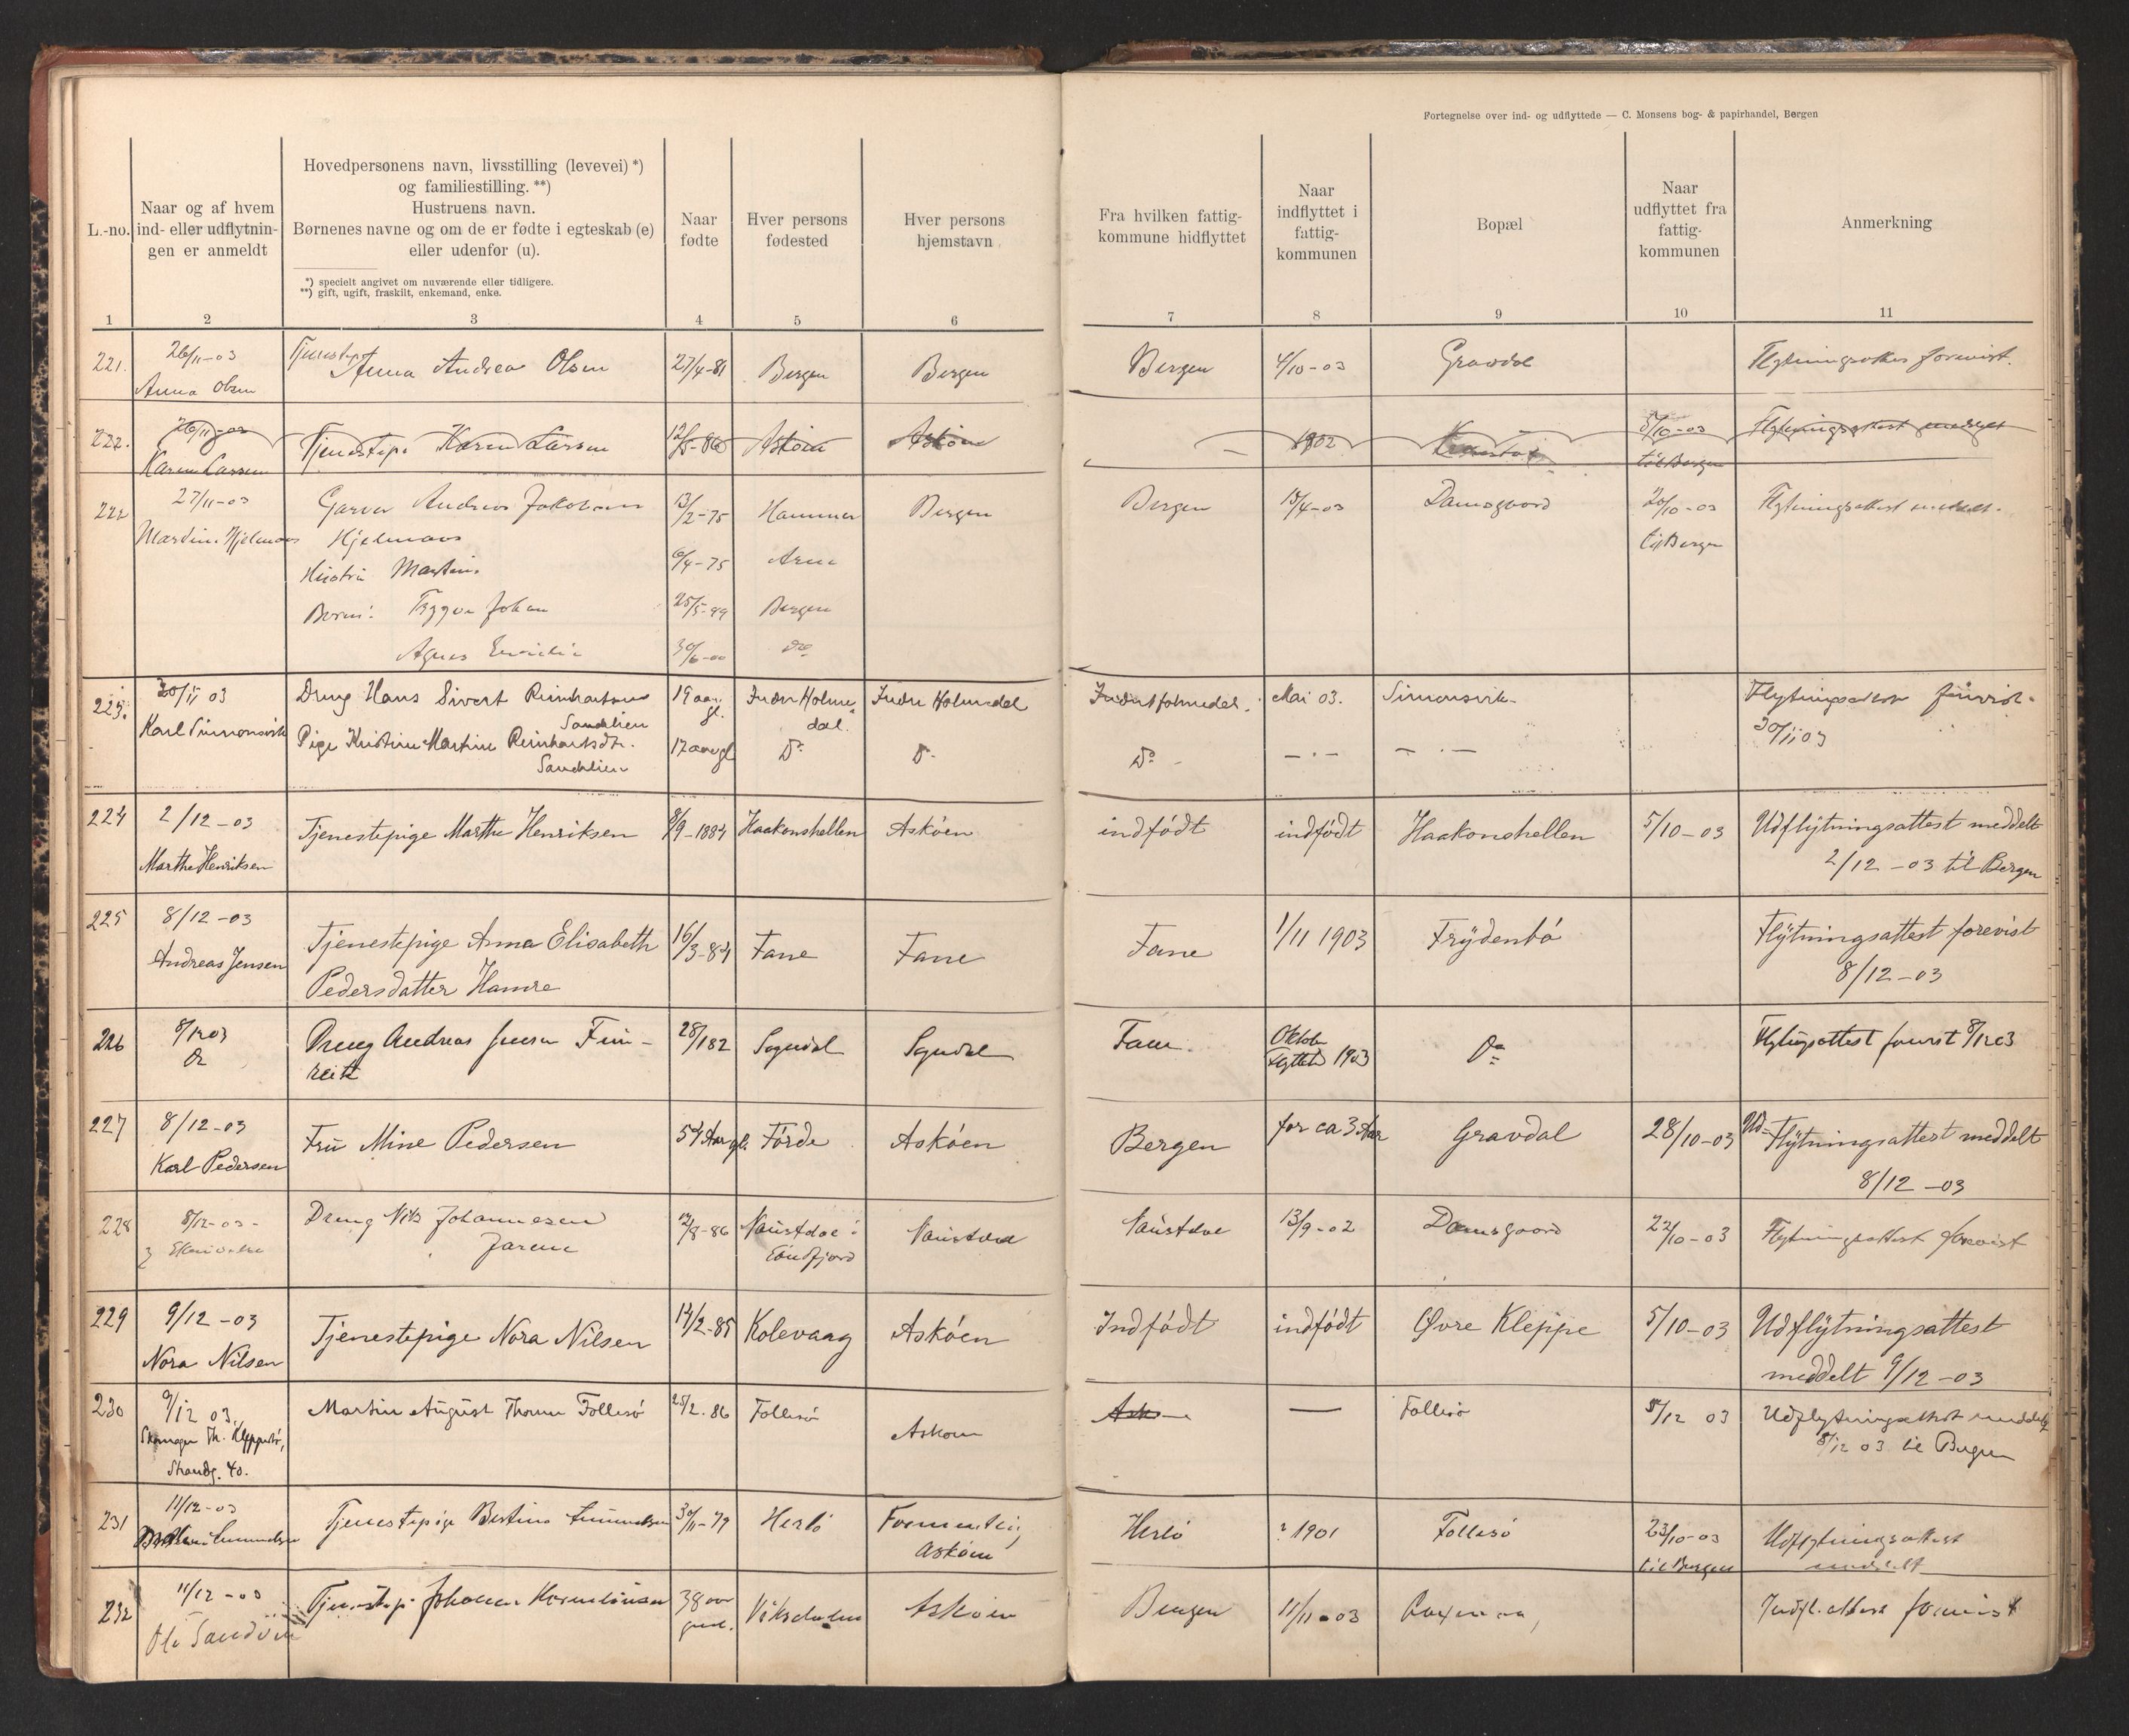 Fortegnelse over ind- og udflyttede — C. Monsens bog- & papirhandel, Bergen
L.-no.
Naar og af hvem
ind- eller udflytnin-
gen er anmeldt
Hovedpersonens navn, livsstilling (levevei) *)
og familiestilling. **)
Hustruens navn.
Børnenes navne og om de er fødte i egteskab (e)
eller udenfor (u).
*) specielt angivet om nuværende eller tidligere.
**) gift, ugift, fraskilt, enkemand, enke.
Naar
fødte
Hver persons
fødested
Hver persons
hjemstavn
Fra hvilken fattig-
kommune hidflyttet
Naar
indflyttet i
fattig-
kommunen
Bopæl
Naar
udflyttet fra
fattig-
kommunen
Anmerkning
1 2 3 4 5 6 7 8 9 10 11
221. 26/11-03 Tjenestepi Anna Andrea Olsen 27/4-81 Bergen Bergen Bergen 4/10-03 Gravdal Flytningsattest forevist.
Anna Olsen
222. 26/11-03 Tjenestepi Karen Larsen Askøen Askøen 1902 5/10-03 Flytningsattest meddelt
Karen Larsen til Bergen
222 27/11-03 Garver Andreas Jakobsen 13/2-75 Hammer Bergen Bergen 15/4-03 Damsgaard 20/10-03 Flytningsattest meddelt.
Martin Hjelmaas Hjelmaas til Bergen
Hustru Martine 6/4-75 Arne
Børn: Trygve Johan 25/5-99 Bergen
Agnes Emilie 30/6-00 do
223. 30/11 03 Dreng Hans Sivert Reinhartsen 19 aar Indre Holme- Indre Holmedal Indre Holmedal. Mai 03. Simonsvik. Flytningsattest forevist
Sandlien gl. dal. 30/11 03
Karl Simonsvik Pige Kristine Martine Reinhartsdtr. 17 aar gl Do Do Do
Sandlien
224 2/12-03 Tjenestepige Marthe Henriksen 8/9-1884 Haakonshellen Askøen indfødt indfødt Haakonshellen 5/10-03 Udflytningsattest meddelt
Marthe Henriksen 2/12-03 til Bergen
225 8/12-03 Tjenestepige Anna Elisabeth 16/3-84 Fane Fane Fane 1/11 1903 Frydenbø Flytningsattest forevist
Andreas Jensen Pedersdatter Hamre 8/12-03
226 8/12 03 Dreng Andreas Jensen Fim- 28/1 82 Sogndal Sogndal Fane. Oktober Do Flytngsattest forevist 8/12 03
Do reite flyttet 1903
227 8/12-03 Fru Mine Pedersen 54 Aar gl. Førde Askøen Bergen for ca 3 Aar Gravdal 28/10-03 Ud-Flytningsattest meddelt
Karl Pedersen 8/12-03
228 8/12-03- Dreng Nils Johannesen 12/8-86 Naustdal i Naustdal Naustdal 13/9-02 Damsgaard 22/10-03 Flytningsattest forevist
Søndfjord
229 9/12-03 Tjenestepige Nora Nilsen 14/2-85 Kolevaag Askøen Indfødt indfødt Øvre Kleppe 5/10-03 Udflytningsattest
Nora Nilsen meddelt 9/12-03
230 9/12 03. Martin August Thomsen Follesø 25/2.86 Follesø Askøen Ask — Follesø 8/12 03 Udflytningsattest meddelt
Strandg. 40. 8/12 03 til Bergen
231 11/12-03 Tjenestepige 30/11-79 Herlø Formentlig Herlø ? 1901 Follesø 23/10-03 Udflytningsattest
Askøen til Bergen meddelt
232 11/12-03 Tjenestepi 38 aar Askøen Bergen 11/11-03 Indfl. attest forevist
Ole Sandvik gml.